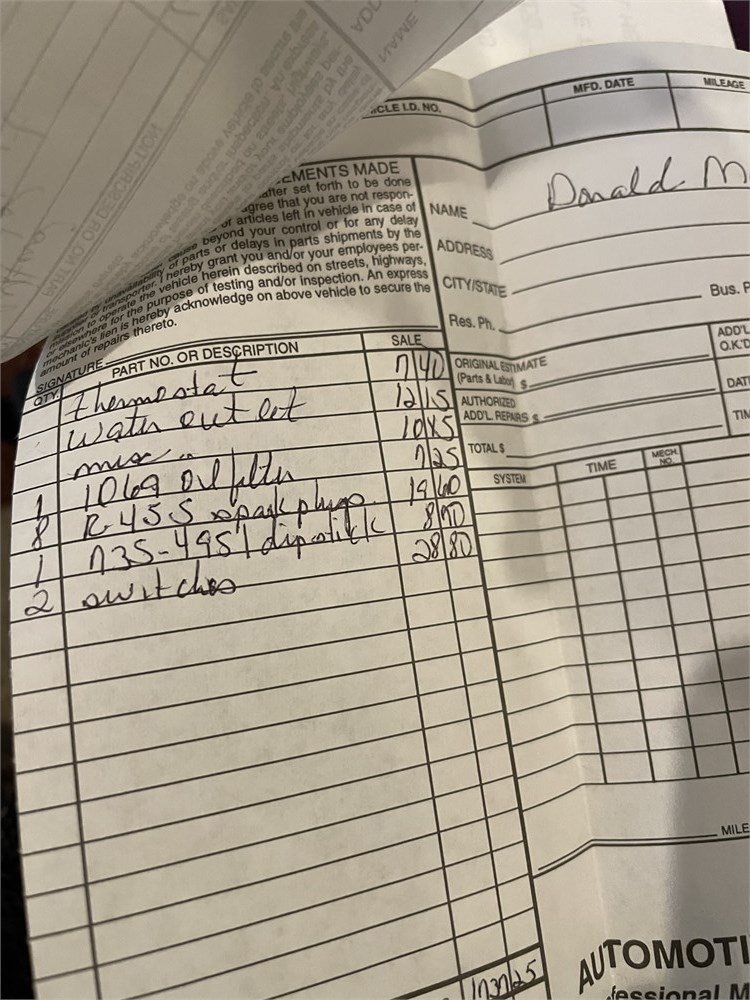 ICLE I.D. NO.
MFD. DATE
MILEAGE
CEMENTS MADE
after set forth to be done
agree that you are not respon-
or articles left in vehicle in case of
cause beyond your control or for any delay
unavailability of parts or delays in parts shipments by the
transporter. I hereby grant you and/or your employees per-
to operate the vehicle herein described on streets, highways,
or elsewhere for the purpose of testing and/or inspection. An express
mechanic's lien is hereby acknowledge on above vehicle to secure the
amount of repairs thereto.
SIGNATURE
NAME Donald M
ADDRESS
CITY/STATE
Res. Ph.
Bus. P
ORIGINAL ESTIMATE
(Parts & Labor) $
AUTHORIZED
ADD'L REPAIRS $
TOTAL $
ADD'L
O.K.'D
DAT
TIM
QTY. PART NO. OR DESCRIPTION SALE
Thermostat 7 40
Water outlet 12 15
misc " 10 45
1 1069 Oil filter 7 25
8 R-45S spark plugs 19 60
1 735-4951 dipstick
2 switches 28 80
SYSTEM
TIME
MECH. NO.
MILE
AUTOMOTI
fessional M